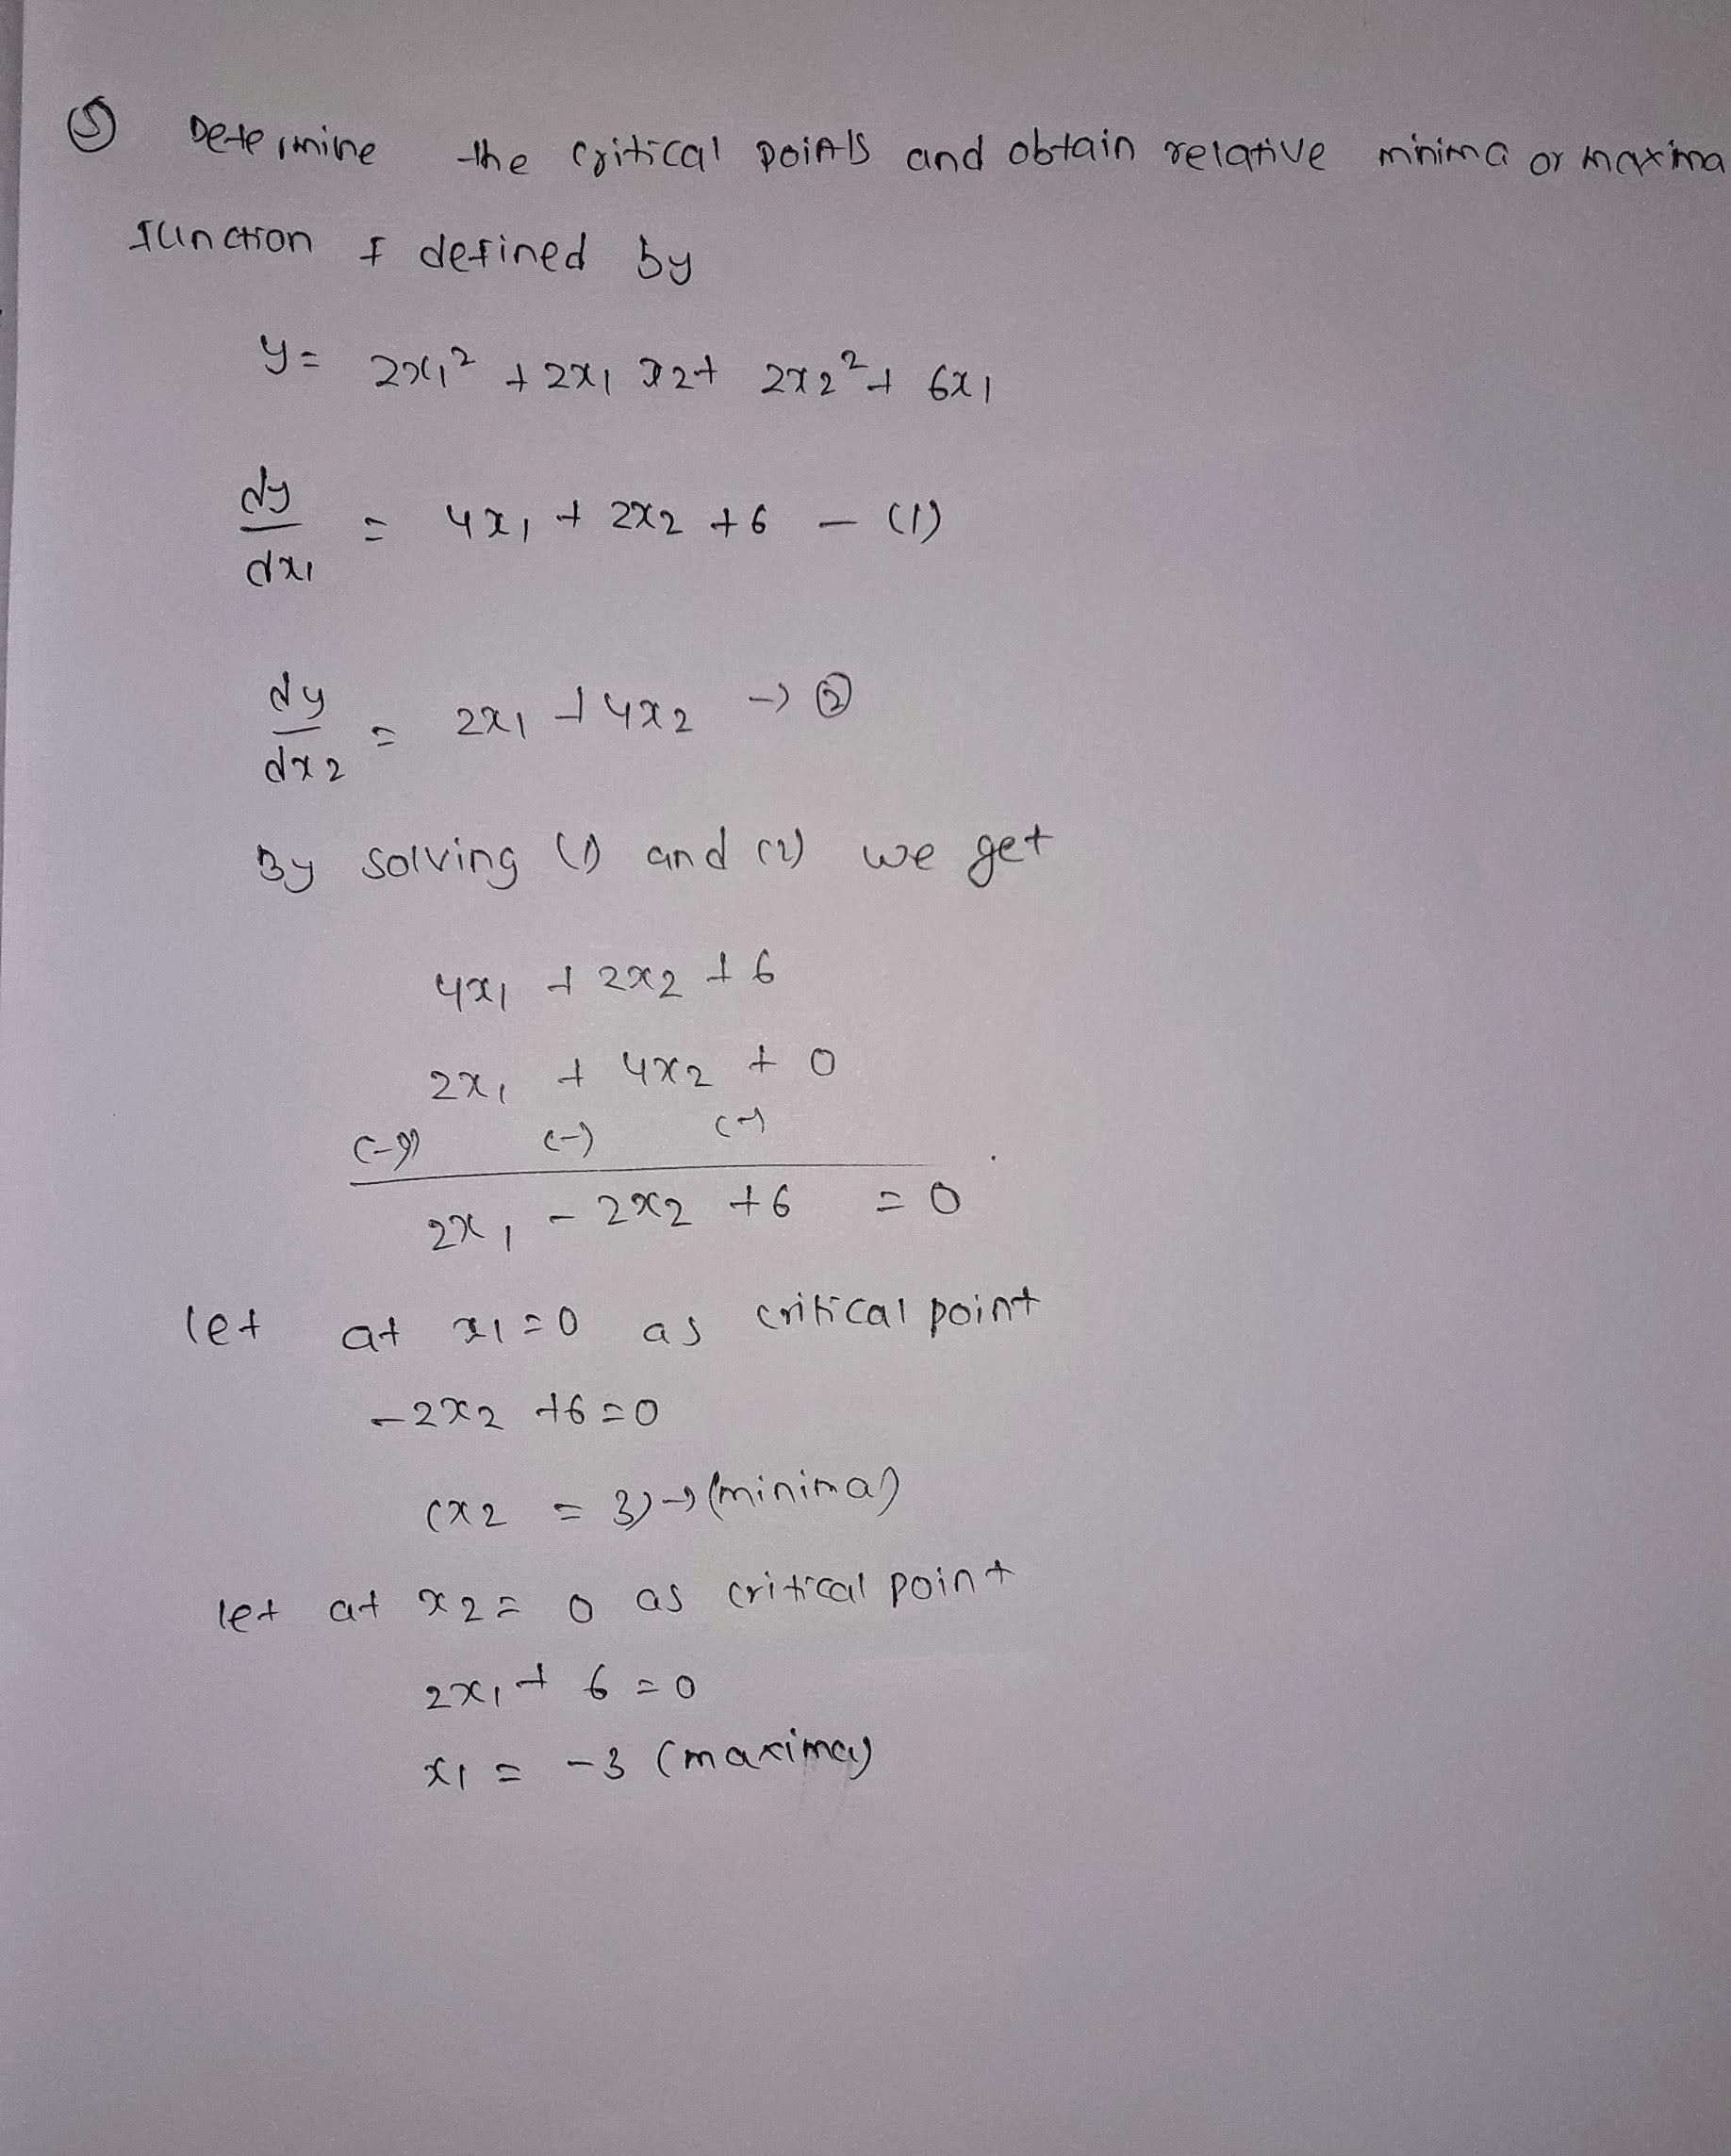 ⑤ Determine the critical points and obtain relative minima or maxima
function f defined by
y = 2x₁² + 2x₁ x₂ + 2x₂² + 6x₁
dy/dx₁ = 4x₁ + 2x₂ + 6 – (1)
dy/dx₂ = 2x₁ + 4x₂ → ②
By solving (1) and (2) we get
4x₁ + 2x₂ + 6
2x₁ + 4x₂ + 0
(-) (-) (-)
2x₁ - 2x₂ + 6 = 0
let at x₁ = 0 as critical point
-2x₂ + 6 = 0
(x₂ = 3) → (minima)
let at x₂ = 0 as critical point
2x₁ + 6 = 0
x₁ = -3 (maxima)